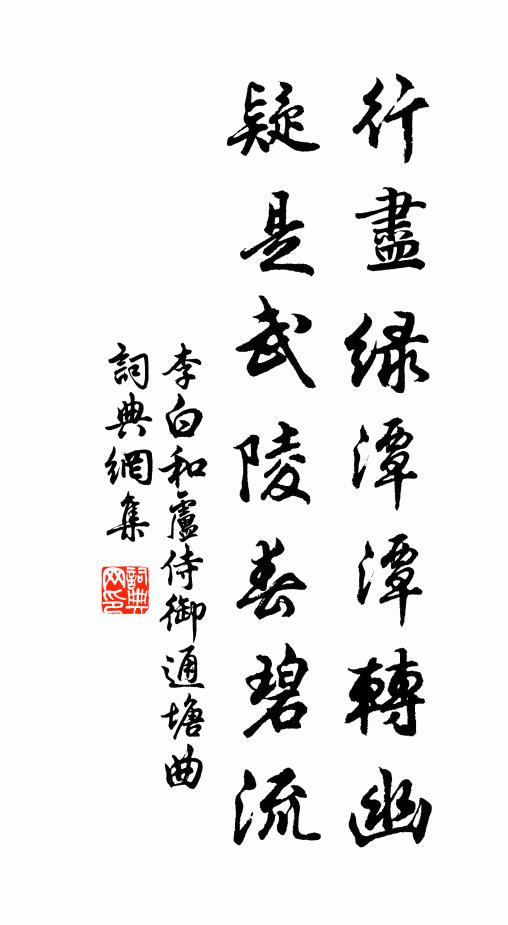 行盡綠潭潭轉幽
疑是武陵春碧流
李白和盧侍御通塘曲
詞典網集
詞典
网印